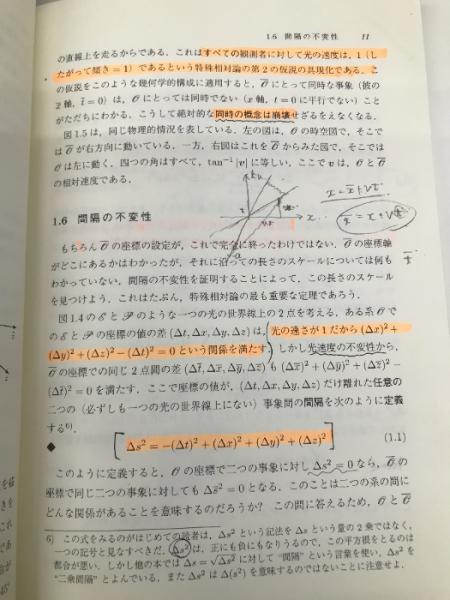 1.6 間隔の不変性 11
の直線上を走るからである．これはすべての観測者に対して光の速度は，1（し
たがって傾き＝1）であるという特殊相対論の第2の仮説の具現化である．こ
の仮説をこのような幾何学的構成に適用すると，𝒪̄ にとって同時な事象（彼の
x̄ 軸，t̄ = 0）は，𝒪 にとっては同時でない（x 軸，t = 0 に平行でない）こと
がただちにわかる．こうして絶対的な同時の概念は崩壊せざるをえなくなる．
図 1.5 は，同じ物理的情況を表している．左の図は，𝒪 の時空図で，そこで
は 𝒪̄ が右方向に動いている．一方，右図はこれを 𝒪̄ からみた図で，そこでは
𝒪 は左に動く．四つの角はすべて，tan⁻¹|v| に等しい．ここで v は，𝒪 と 𝒪̄
の相対速度である．
1.6 間隔の不変性
もちろん 𝒪̄ の座標の設定が，これで完全に終ったわけではない．𝒪̄ の座標軸
がどこにあるかはわかったが，それに沿っての長さのスケールについては何も
わかっていない．間隔の不変性を証明することによって，この長さのスケール
を見つけよう．これはたぶん，特殊相対論の最も重要な定理であろう．
図 1.4 の ℰ と 𝒫 のような一つの光の世界線上の 2 点を考える．ある系 𝒪 で
の ℰ と 𝒫 の座標の値の差 (Δt, Δx, Δy, Δz) は，光の速さが 1 だから (Δx)² +
(Δy)² + (Δz)² − (Δt)² = 0 という関係を満たす．しかし光速度の不変性から，
𝒪̄ の座標での同じ 2 点間の差 (Δt̄, Δx̄, Δȳ, Δz̄) も (Δx̄)² + (Δȳ)² + (Δz̄)² −
(Δt̄)² = 0 を満たす．ここで座標の値が，(Δt, Δx, Δy, Δz) だけ離れた任意の
二つの（必ずしも一つの光の世界線上にない）事象間の間隔を次のように定義
する⁶⁾．
◆ Δs² = −(Δt)² + (Δx)² + (Δy)² + (Δz)² (1.1)
このように定義すると，𝒪 の座標で二つの事象に対し Δs² = 0 なら，𝒪̄ の
座標で同じ二つの事象に対しても Δs̄² = 0 となる．このことは二つの系の間に
どんな関係があることを意味するのだろうか？ この問に答えるため，𝒪 と 𝒪̄
6) この式をみるのがはじめての読者は，Δs² という記法を Δs という量の 2 乗ではなく，
一つの記号と見なすべきだ．Δs² は，正にも負にもなりうるので，この平方根をとるのは
都合が悪い．しかし他の本では Δs = √Δs² に対して “間隔” という言葉を使い，Δs² を
“二乗間隔” とよんでいる．また Δs² は Δ(s²) を意味するのではないことに注意せよ．